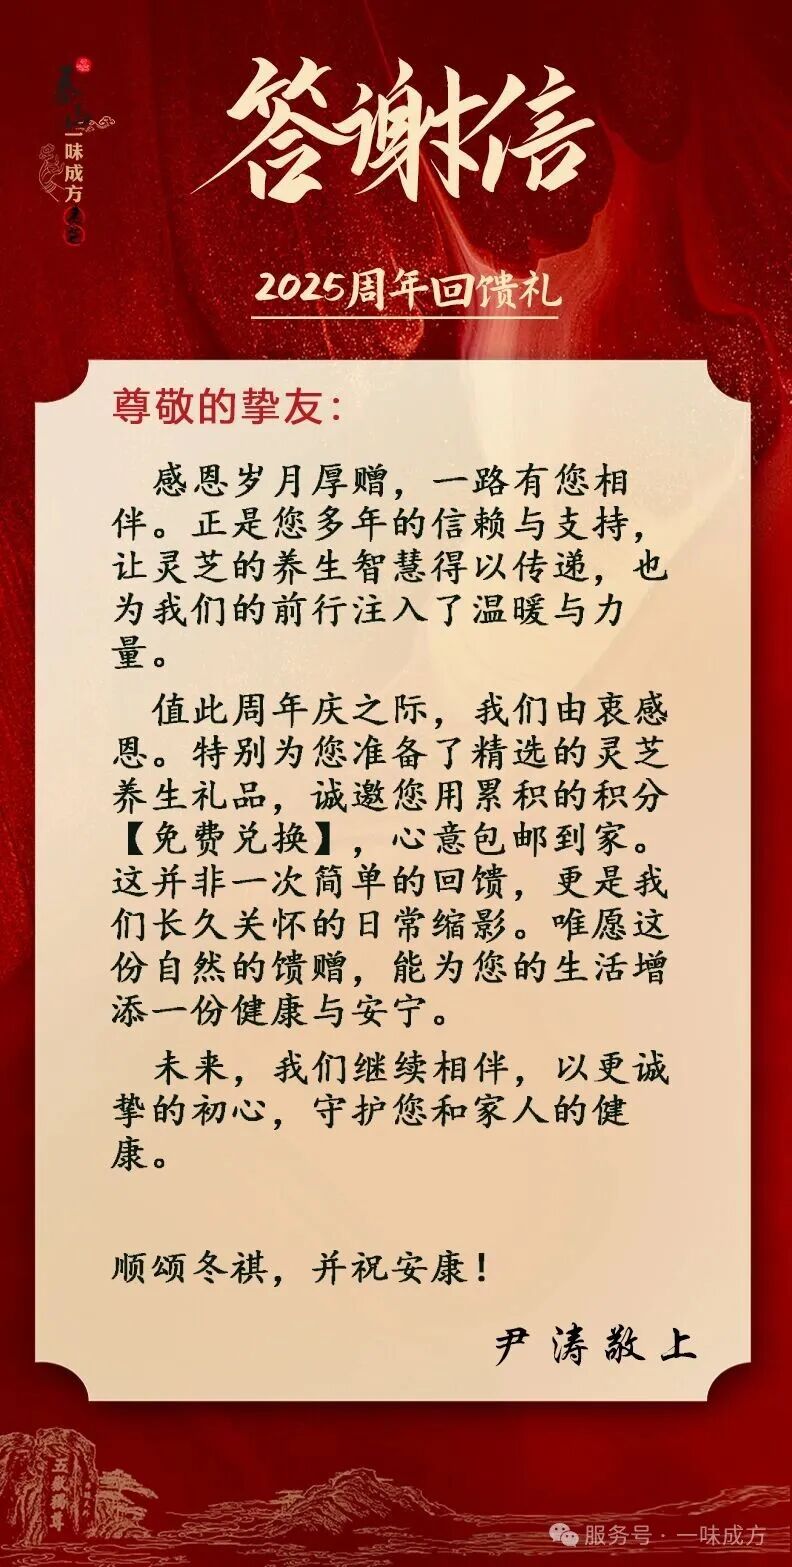 答谢信
一味成方
2025周年回馈礼
尊敬的挚友：
感恩岁月厚赠，一路有您相
伴。正是您多年的信赖与支持，
让灵芝的养生智慧得以传递，也
为我们的前行注入了温暖与力
量。
值此周年庆之际，我们由衷感
恩。特别为您准备了精选的灵芝
养生礼品，诚邀您用累积的积分
【免费兑换】，心意包邮到家。
这并非一次简单的回馈，更是我
们长久关怀的日常缩影。唯愿这
份自然的馈赠，能为您的生活增
添一份健康与安宁。
未来，我们继续相伴，以更诚
挚的初心，守护您和家人的健
康。
顺颂冬祺，并祝安康！
尹涛敬上
服务号·一味成方